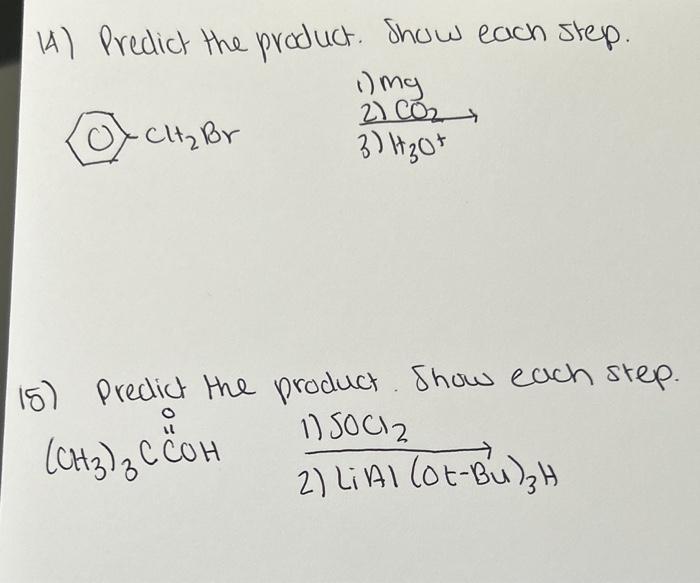 14) Predict the product. Show each step.
1) Mg
2) CO2
3) H3O+
CH2Br
15) Predict the product. Show each step.
O
(CH3)3CCOH
1) SOCl2
2) LiAl(Ot-Bu)3H